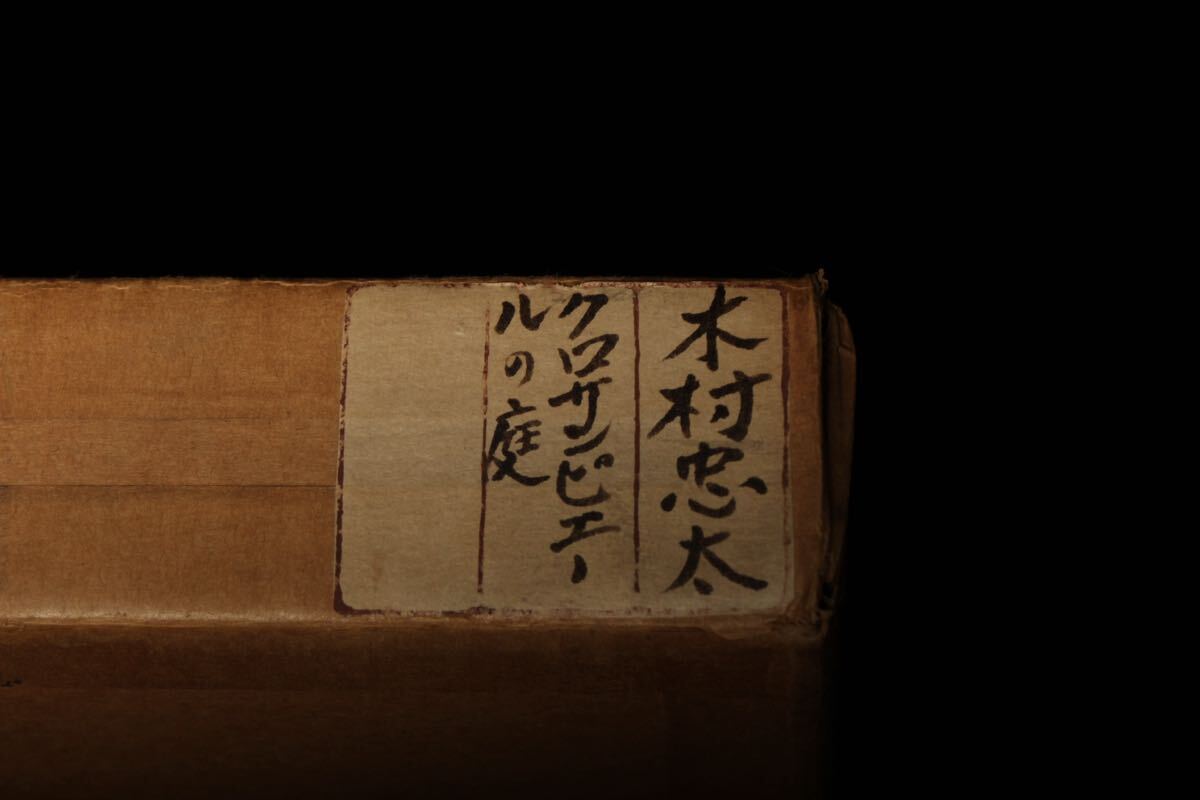 木村忠太
クロサンピエー
ルの庭